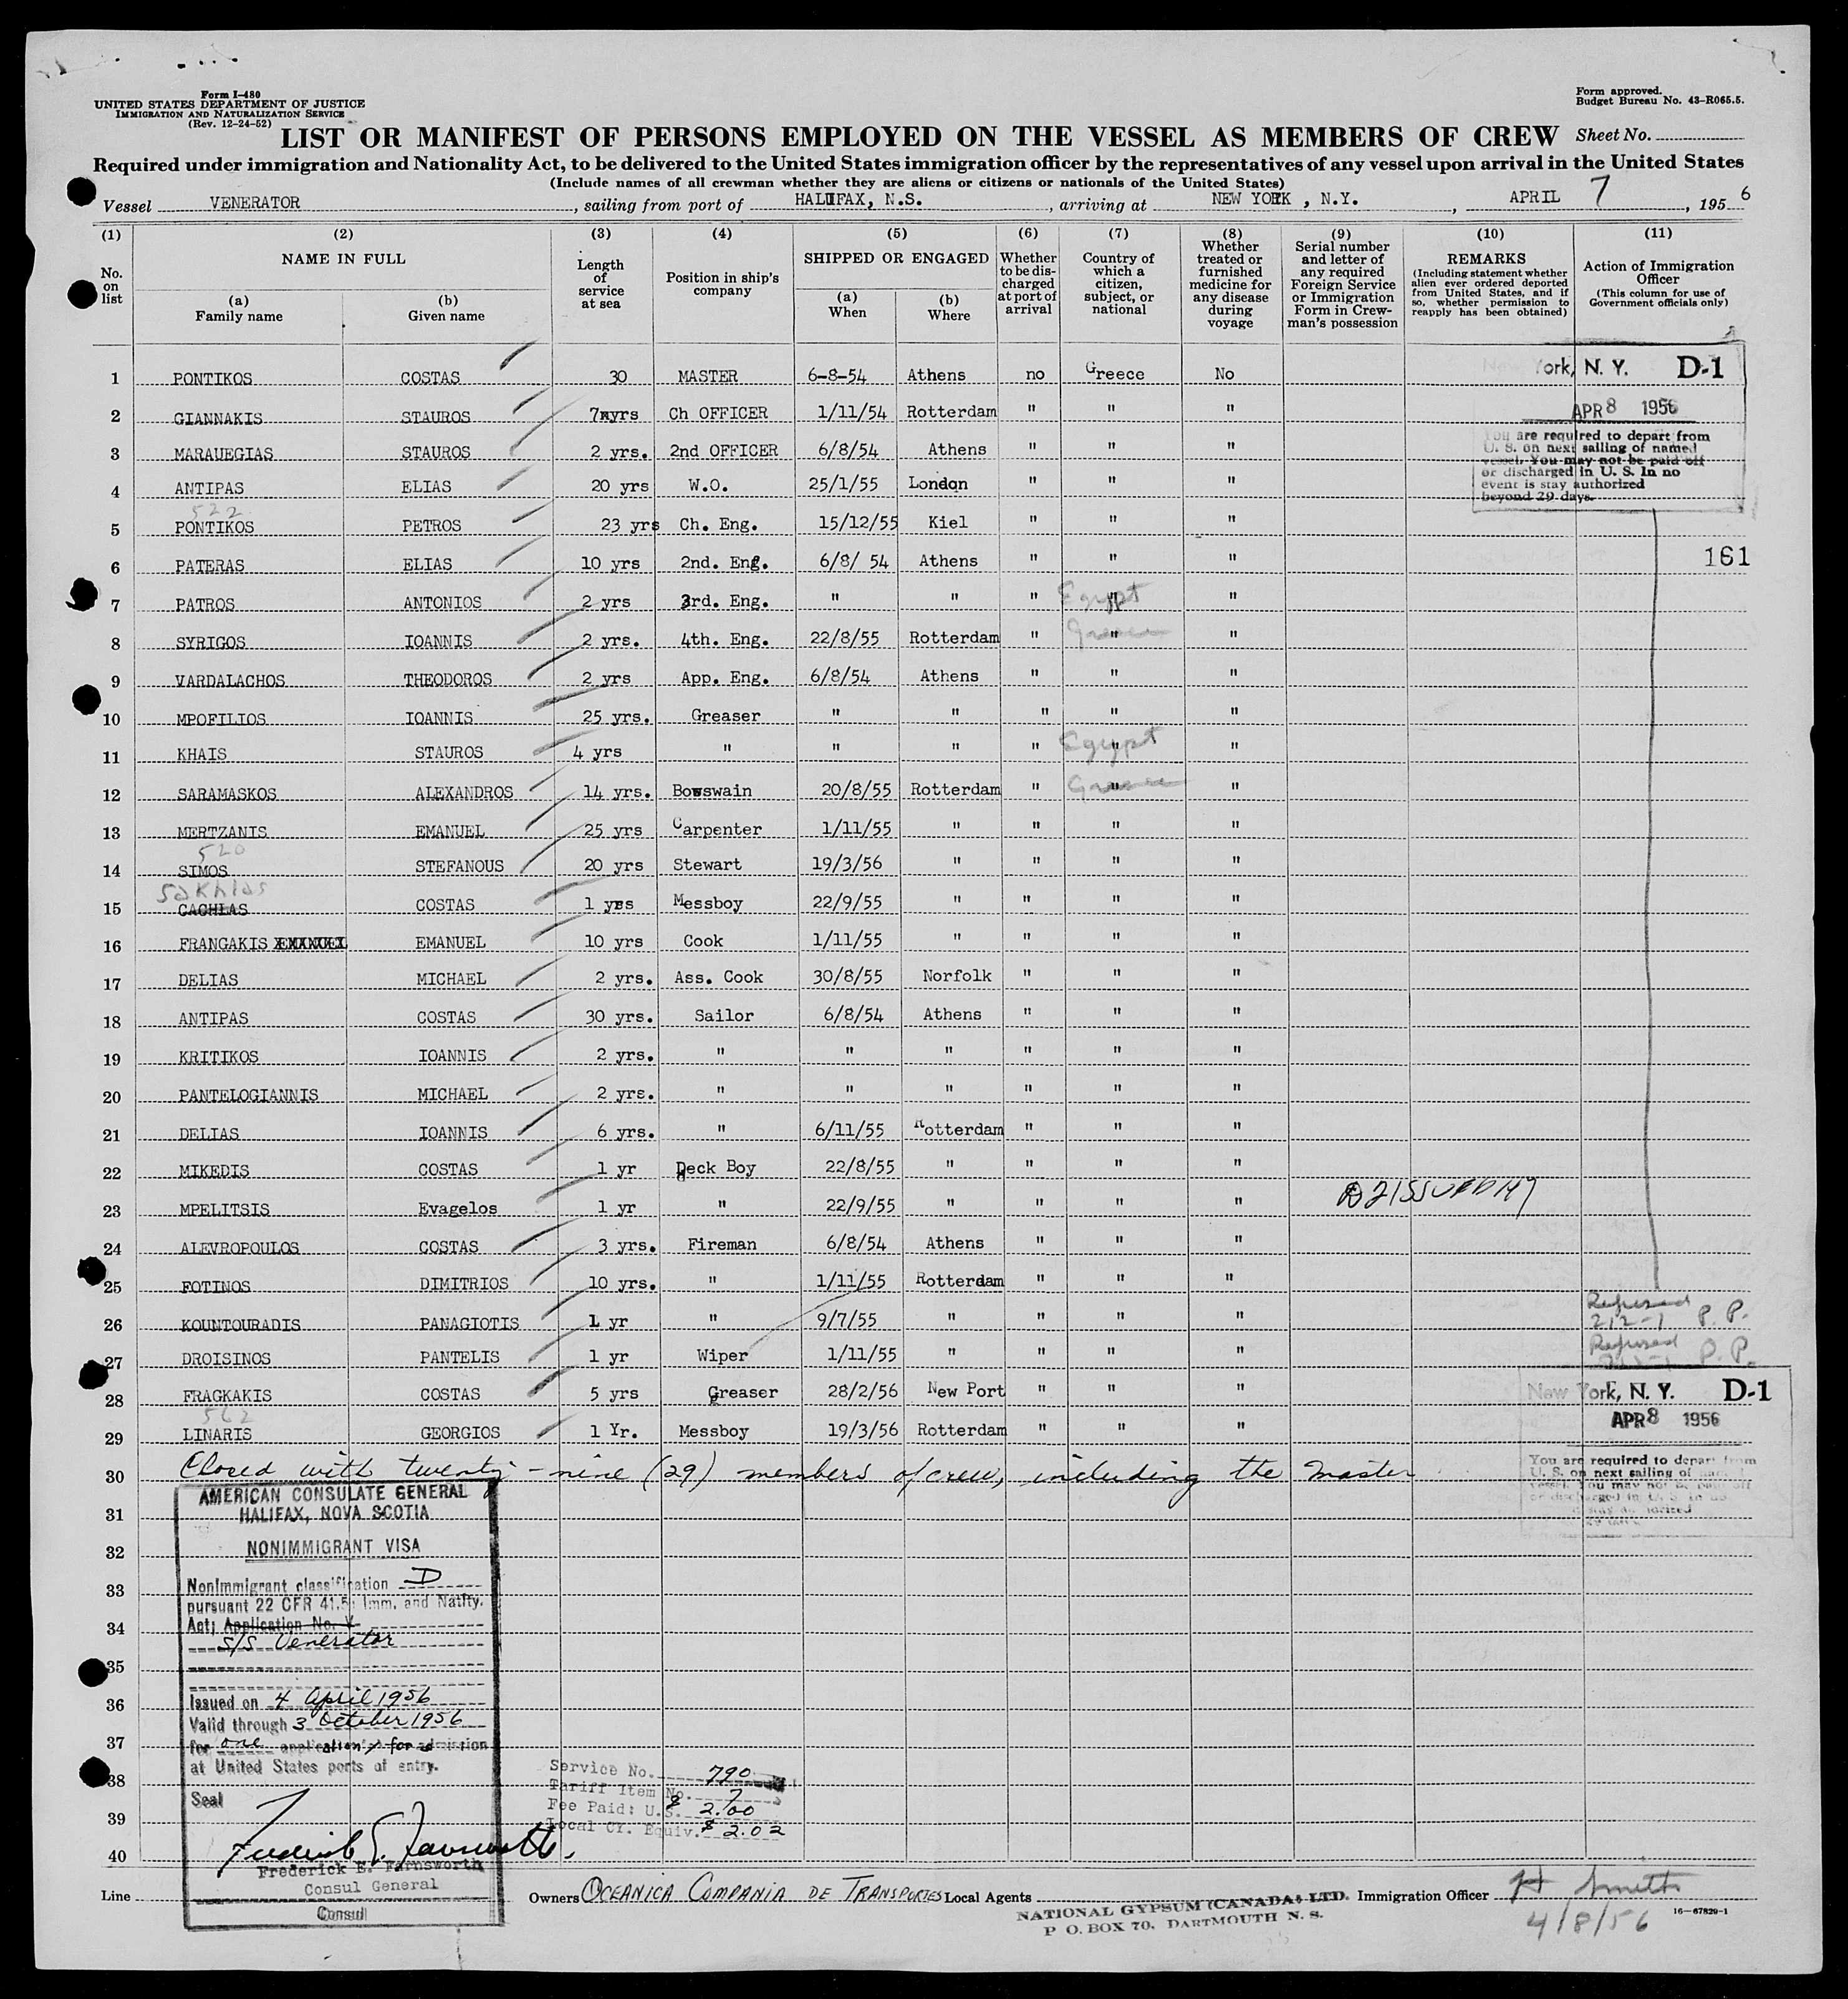 Form I-480
UNITED STATES DEPARTMENT OF JUSTICE
IMMIGRATION AND NATURALIZATION SERVICE
(Rev. 12-24-52)
Form approved.
Budget Bureau No. 43-R065.5.
LIST OR MANIFEST OF PERSONS EMPLOYED ON THE VESSEL AS MEMBERS OF CREW Sheet No.
Required under immigration and Nationality Act, to be delivered to the United States immigration officer by the representatives of any vessel upon arrival in the United States
(Include names of all crewman whether they are aliens or citizens or nationals of the United States)
Vessel VENERATOR, sailing from port of HALIFAX, N.S., arriving at NEW YORK , N.Y., APRIL 7, 1956
(1) (2) (3) (4) (5) (6) (7) (8) (9) (10) (11)
No. on list
NAME IN FULL
(a) Family name
(b) Given name
Length of service at sea
Position in ship's company
SHIPPED OR ENGAGED
(a) When
(b) Where
Whether to be discharged at port of arrival
Country of which a citizen, subject, or national
Whether treated or furnished medicine for any disease during voyage
Serial number and letter of any required Foreign Service or Immigration Form in Crewman's possession
REMARKS
(Including statement whether alien ever ordered deported from United States, and if so, whether permission to reapply has been obtained)
Action of Immigration Officer
(This column for use of Government officials only)
1 PONTIKOS COSTAS 30 MASTER 6-8-54 Athens no Greece No
2 GIANNAKIS STAUROS 7 yrs Ch OFFICER 1/11/54 Rotterdam " " "
3 MARAUEGIAS STAUROS 2 yrs. 2nd OFFICER 6/8/54 Athens " " "
4 ANTIPAS ELIAS 20 yrs W.O. 25/1/55 London " " "
522
5 PONTIKOS PETROS 23 yrs Ch. Eng. 15/12/55 Kiel " " "
6 PATERAS ELIAS 10 yrs 2nd. Eng. 6/8/ 54 Athens " " "
7 PATROS ANTONIOS 2 yrs 3rd. Eng. " " " " Egypt "
8 SYRIGOS IOANNIS 2 yrs. 4th. Eng. 22/8/55 Rotterdam " " Greece "
9 VARDALACHOS THEODOROS 2 yrs App. Eng. 6/8/54 Athens " " "
10 MPOFILIOS IOANNIS 25 yrs. Greaser " " " " "
11 KHAIS STAUROS 4 yrs " " " " " Egypt "
12 SARAMASKOS ALEXANDROS 14 yrs. Bowswain 20/8/55 Rotterdam " " Greece "
13 MERTZANIS EMANUEL 25 yrs Carpenter 1/11/55 " " " "
520
14 SIMOS STEFANOUS 20 yrs Stewart 19/3/56 " " " "
Sakhlas
15 CACHLAS COSTAS 1 yrs Messboy 22/9/55 " " " "
16 FRANGAKIS EMANUEL EMANUEL 10 yrs Cook 1/11/55 " " " "
17 DELIAS MICHAEL 2 yrs. Ass. Cook 30/8/55 Norfolk " " "
18 ANTIPAS COSTAS 30 yrs. Sailor 6/8/54 Athens " " "
19 KRITIKOS IOANNIS 2 yrs. " " " " " "
20 PANTELOGIANNIS MICHAEL 2 yrs. " " " " " "
21 DELIAS IOANNIS 6 yrs. " 6/11/55 Rotterdam " " "
22 MIKEDIS COSTAS 1 yr Deck Boy 22/8/55 " " " "
23 MPELITSIS Evagelos 1 yr " 22/9/55 " " " "
24 ALEVROPOULOS COSTAS 3 yrs. Fireman 6/8/54 Athens " " "
25 FOTINOS DIMITRIOS 10 yrs. " 1/11/55 Rotterdam " " "
26 KOUNTOURADIS PANAGIOTIS 1 yr " 9/7/55 " " " " Refused 212-1 P.P.
27 DROISINOS PANTELIS 1 yr Wiper 1/11/55 " " " " Refused P.P.
28 FRAGKAKIS COSTAS 5 yrs Greaser 28/2/56 New Port " " "
562
29 LINARIS GEORGIOS 1 Yr. Messboy 19/3/56 Rotterdam " " "
30 Closed with twenty-nine (29) members of crew, including the Master
31
32
33
34
35
36
37
38
39
40
New York, N. Y. D-1
APR 8 1956
You are required to depart from
U. S. on next sailing of named
vessel. You may not be paid off
or discharged in U. S. In no
event is stay authorized
beyond 29 days.
161
New York, N. Y. D-1
APR 8 1956
You are required to depart from
U. S. on next sailing of
vessel. You may not be paid off
AMERICAN CONSULATE GENERAL
HALIFAX, NOVA SCOTIA
NONIMMIGRANT VISA
Nonimmigrant classification D
pursuant 22 CFR 41.5; Imm. and Natlty.
Act; Application No. V
S/S Venerator
Issued on 4 April 1956
Valid through 3 October 1956
for one application/s for admission
at United States ports of entry.
Seal
Frederick E. Farnsworth
Frederick E. Farnsworth
Consul General
Consul
Service No. 790
Tariff Item No. 7
Fee Paid: U.S. $ 2.00
Local Cy. Equiv. $ 2.02
Line
Owners OCEANICA COMPANIA DE TRANSPORTES Local Agents
NATIONAL GYPSUM (CANADA) LTD.
P O. BOX 70, DARTMOUTH N. S.
Immigration Officer H Smith
4/8/56
16—67829-1